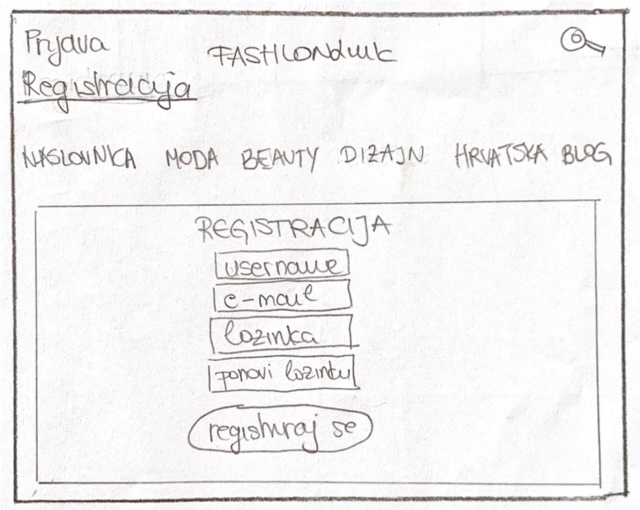 Prijava
FASHIONdunk
Registracija
NASLOVNICA MODA BEAUTY DIZAJN HRVATSKA BLOG
REGISTRACIJA
username
e-mail
lozinka
ponovi lozinku
registriraj se